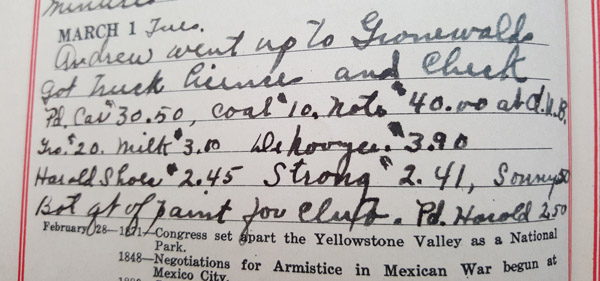 minutes
MARCH 1 Tues.
Andrew went up to Gronewalds
Got Truck licenses and Check
Pd. Car $30.50, Coal $10. Note $40.00 at
Gro. $20. Milk $3.10 $3.90
Harold Shoes $2.45 Strong $2.41, Sonny 50
Bot qt of paint for Club. Pd. Harold 2.50
February 28—1871—Congress set apart the Yellowstone Valley as a National
Park.
1848—Negotiations for Armistice in Mexican War begun at
Mexico City.